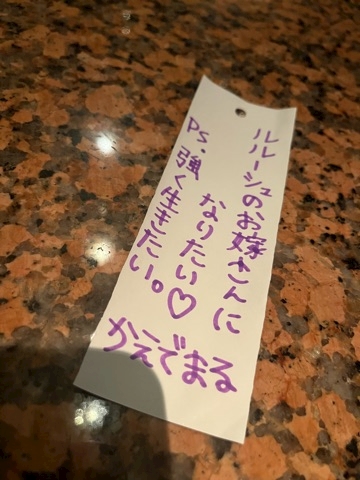 ルルーシュのお嫁さんに
なりたい♡
PS.強く生きたい。
かえでまる